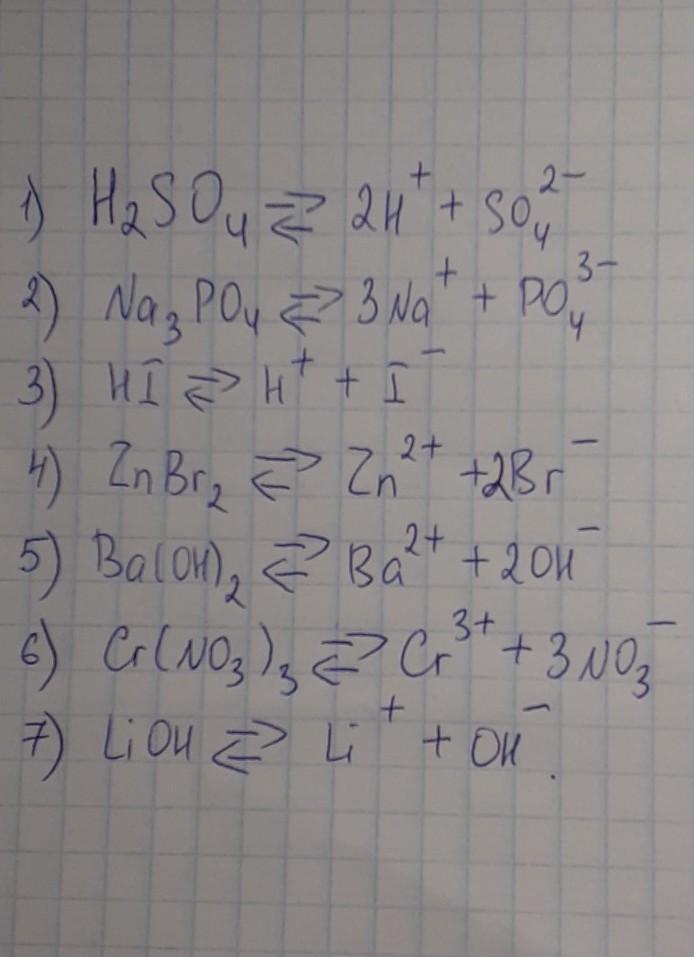 1) H₂SO₄ ⇄ 2H⁺ + SO₄²⁻
2) Na₃PO₄ ⇄ 3Na⁺ + PO₄³⁻
3) HI ⇄ H⁺ + I⁻
4) ZnBr₂ ⇄ Zn²⁺ +2Br⁻
5) Ba(OH)₂ ⇄ Ba²⁺ + 2OH⁻
6) Cr(NO₃)₃ ⇄ Cr³⁺ + 3NO₃⁻
7) LiOH ⇄ Li⁺ + OH⁻.